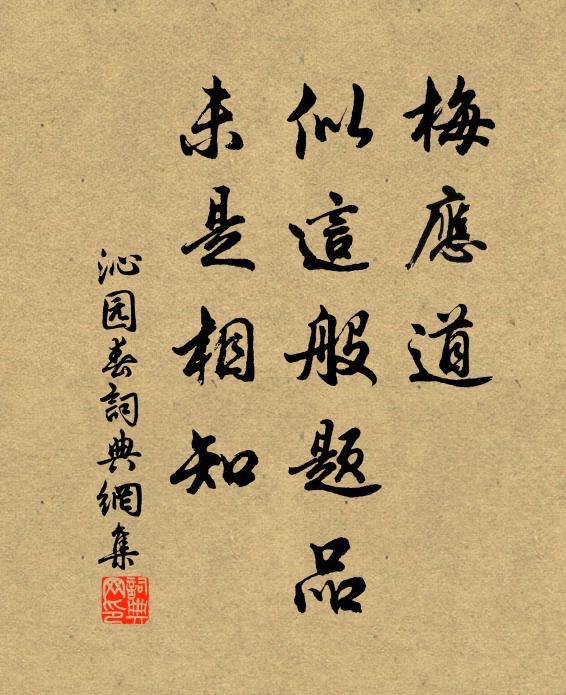 梅應道
似這般题品
未是相知
沁园春詞典網集
詞典网印